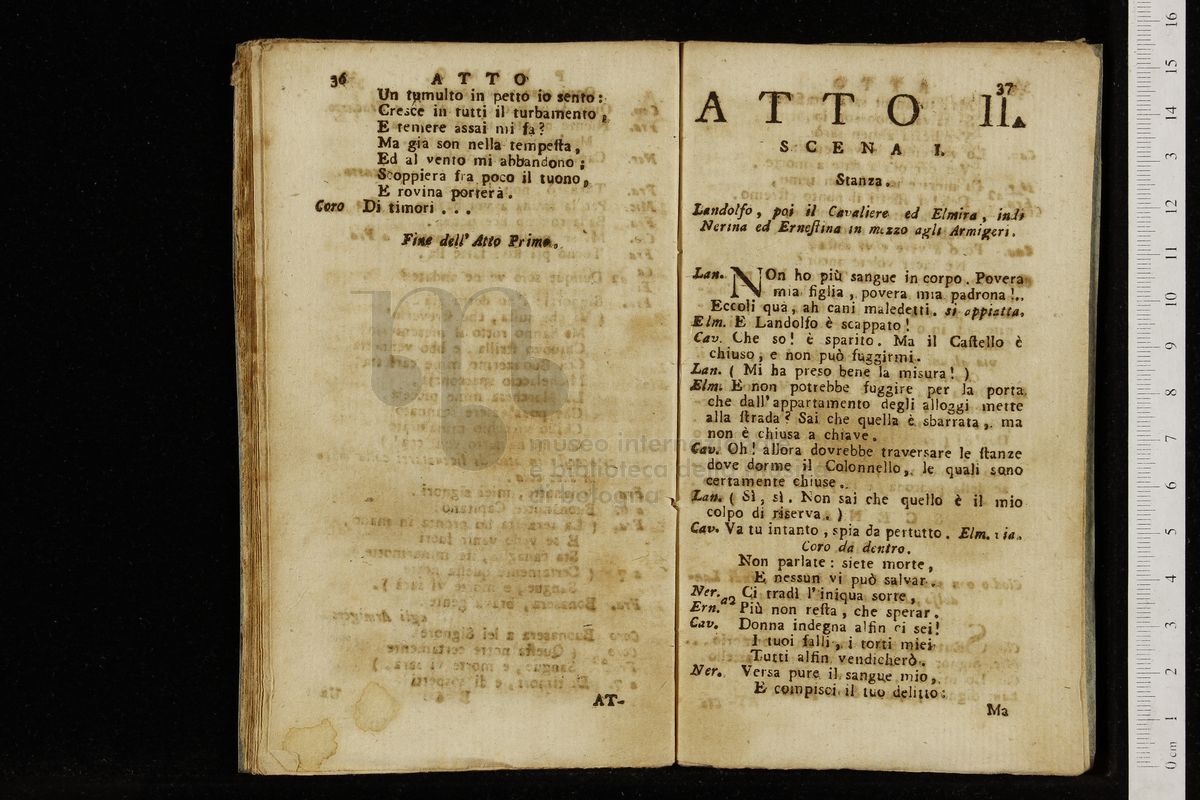 36 ATTO
Un tumulto in petto io sento:
Cresce in tutti il turbamento,
E temere assai mi fa?
Ma gia son nella tempeſta,
Ed al vento mi abbandono;
Scoppiera fra poco il tuono,
E rovina porterà.
Coro Di timori . . .
Fine dell' Atto Primo.
AT-
37
ATTO II.
SCENA I.
Stanza.
Landolfo, poi il Cavaliere ed Elmira, indi
Nerina ed Erneſtina in mezzo agli Armigeri.
Lan. NOn ho più sangue in corpo. Povera
mia figlia, povera mia padrona!..
Eccoli quà, ah cani maledetti. si appiatta.
Elm. E Landolfo è scappato!
Cav. Che so! è sparito. Ma il Caſtello è
chiuso, e non può fuggirmi.
Lan. ( Mi ha preso bene la misura! )
Elm. E non potrebbe fuggire per la porta
che dall' appartamento degli alloggi mette
alla ſtrada? Sai che quella è sbarrata, ma
non è chiusa a chiave.
Cav. Oh! allora dovrebbe traversare le ſtanze
dove dorme il Colonnello, le quali sono
certamente chiuse.
Lan. ( Sì, sì. Non sai che quello è il mio
colpo di riserva. )
Cav. Va tu intanto, spia da pertutto. Elm. via.
Coro da dentro.
Non parlate: siete morte,
E nessun vi può salvar.
Ner. a2 Ci tradì l' iniqua sorte,
Ern. Più non reſta, che sperar.
Cav. Donna indegna alfin ci sei!
I tuoi falli, i torti miei
Tutti alfin vendicherò.
Ner. Versa pure il sangue mio,
E compisci il tuo delitto:
Ma
museo internazionale
e biblioteca della musica
di bologna
0 cm 1 2 3 4 5 6 7 8 9 10 11 12 3 14 15 16